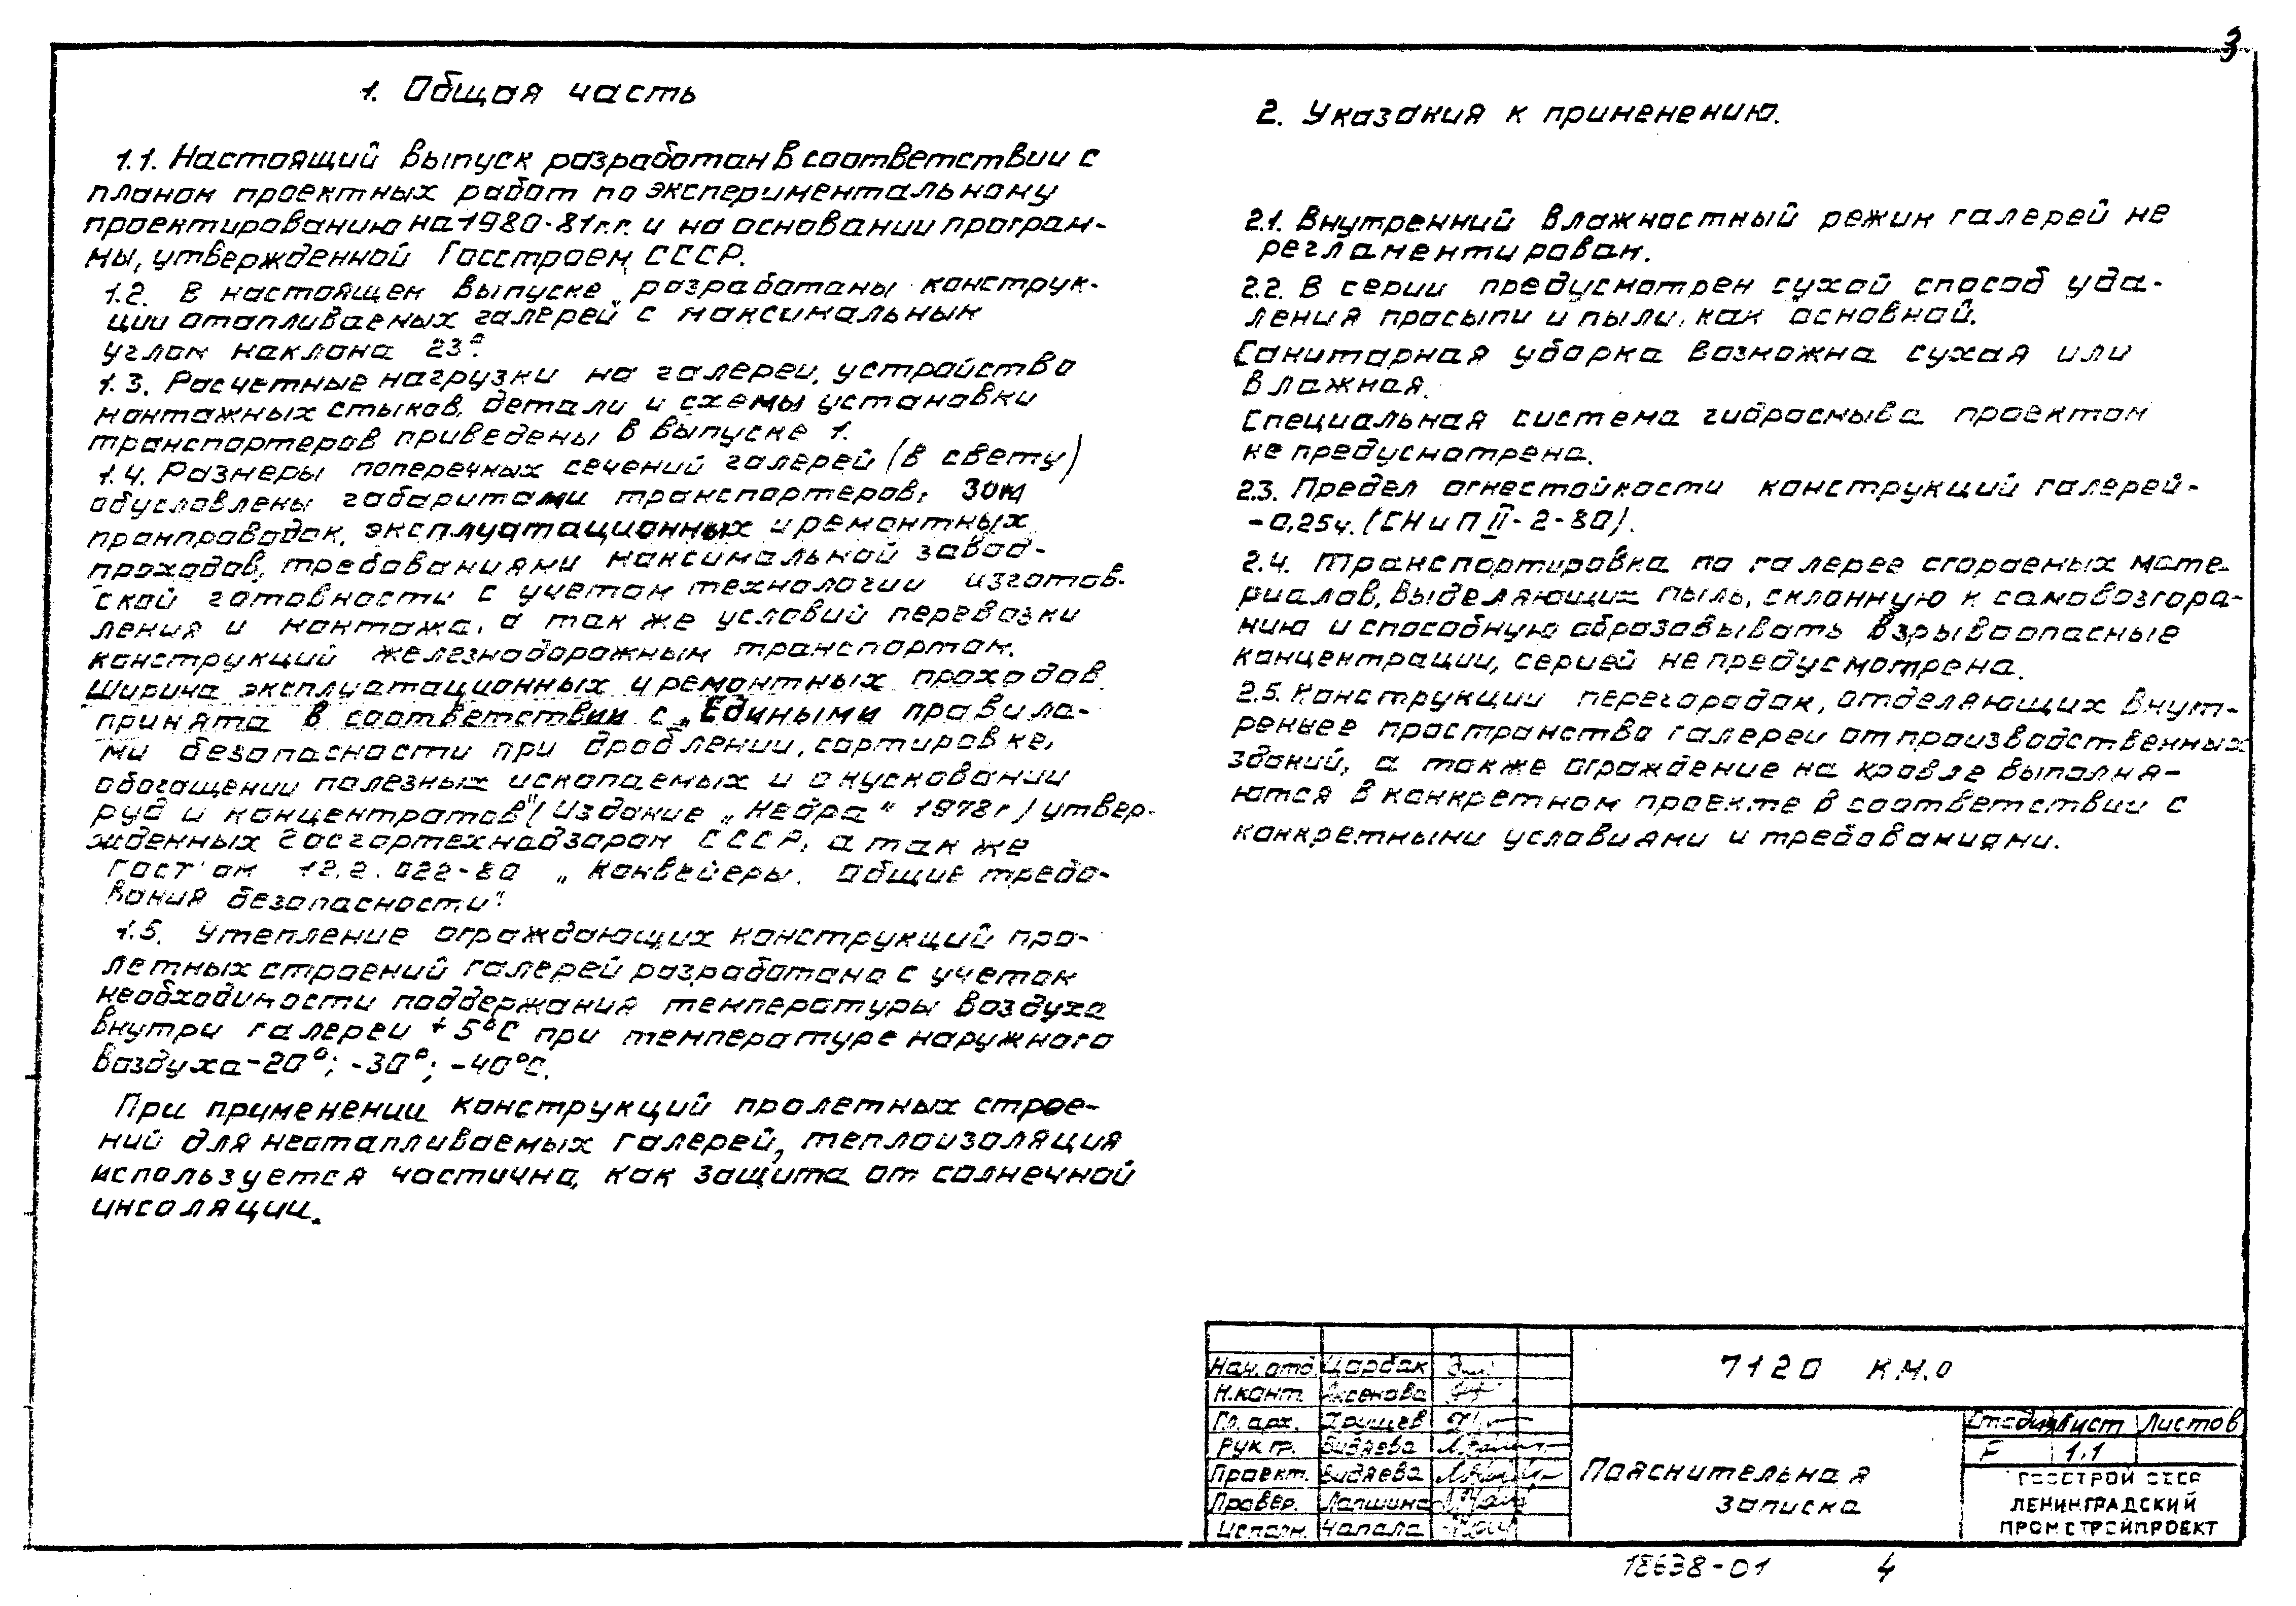 3
1. Общая часть
1.1. Настоящий выпуск разработан в соответствии с
планом проектных работ по экспериментальному
проектированию на 1980-81г.г. и на основании програм-
мы, утвержденной Госстроем СССР.
1.2. В настоящем выпуске разработаны конструк-
ции отапливаемых галерей с максимальным
углом наклона 23°.
1.3. Расчетные нагрузки на галереи, устройство
монтажных стыков, детали и схемы установки
транспортеров приведены в выпуске 1.
1.4. Размеры поперечных сечений галерей (в свету)
обусловлены габаритами транспортеров,
промпроводок, эксплуатационных и ремонтных
проходов, требованиями максимальной завод-
ской готовности с учетом технологии изготов-
ления и монтажа, а так же условий перевозки
конструкций железнодорожным транспортом.
Ширина эксплуатационных и ремонтных проходов
принята в соответствии с „Едиными правила-
ми безопасности при дроблении, сортировке,
обогащении полезных ископаемых и окусковании
руд и концентратов" (Издание „Недра" 1978г) утвер-
жденных Госгортехнадзором СССР, а так же
ГОСТ'ом 12.2.022-80 „Конвейеры. Общие требо-
вания безопасности".
1.5. Утепление ограждающих конструкций про-
летных строений галерей разработано с учетом
необходимости поддержания температуры воздуха
внутри галереи +5°С при температуре наружного
воздуха -20°; -30°; -40°С.
При применении конструкций пролетных строе-
ний для неотапливаемых галерей, теплоизоляция
используется частично, как защита от солнечной
инсоляции.
2. Указания к применению.
2.1. Внутренний влажностный режим галерей не
регламентирован.
2.2. В серии предусмотрен сухой способ уда-
ления просыпи и пыли, как основной.
Санитарная уборка возможна сухая или
влажная.
Специальная система гидросмыва проектом
не предусмотрена.
2.3. Предел огнестойкости конструкций галерей-
-0,25ч. (СНиП II-2-80).
2.4. Транспортировка по галерее сгораемых мате-
риалов, выделяющих пыль, склонную к самовозгора-
нию и способную образовывать взрывоопасные
концентрации, серией не предусмотрена.
2.5. Конструкции перегородок, отделяющих внут-
реннее пространство галереи от производственных
зданий, а также ограждение на кровле выполня-
ются в конкретном проекте в соответствии с
конкретными условиями и требованиями.
Нач. отд. Царбак
Н.конт. Аксенова
Гл. арх. Хрущев
Рук. гр. Видяева
Проект. Видяева
Провер. Лапшина
Исполн. Чапала
7120 КМ.0
Пояснительная
записка
Стадия Лист Листов
Р 1.1
ГОССТРОЙ СССР
ЛЕНИНГРАДСКИЙ
ПРОМСТРОЙПРОЕКТ
18638-01 4